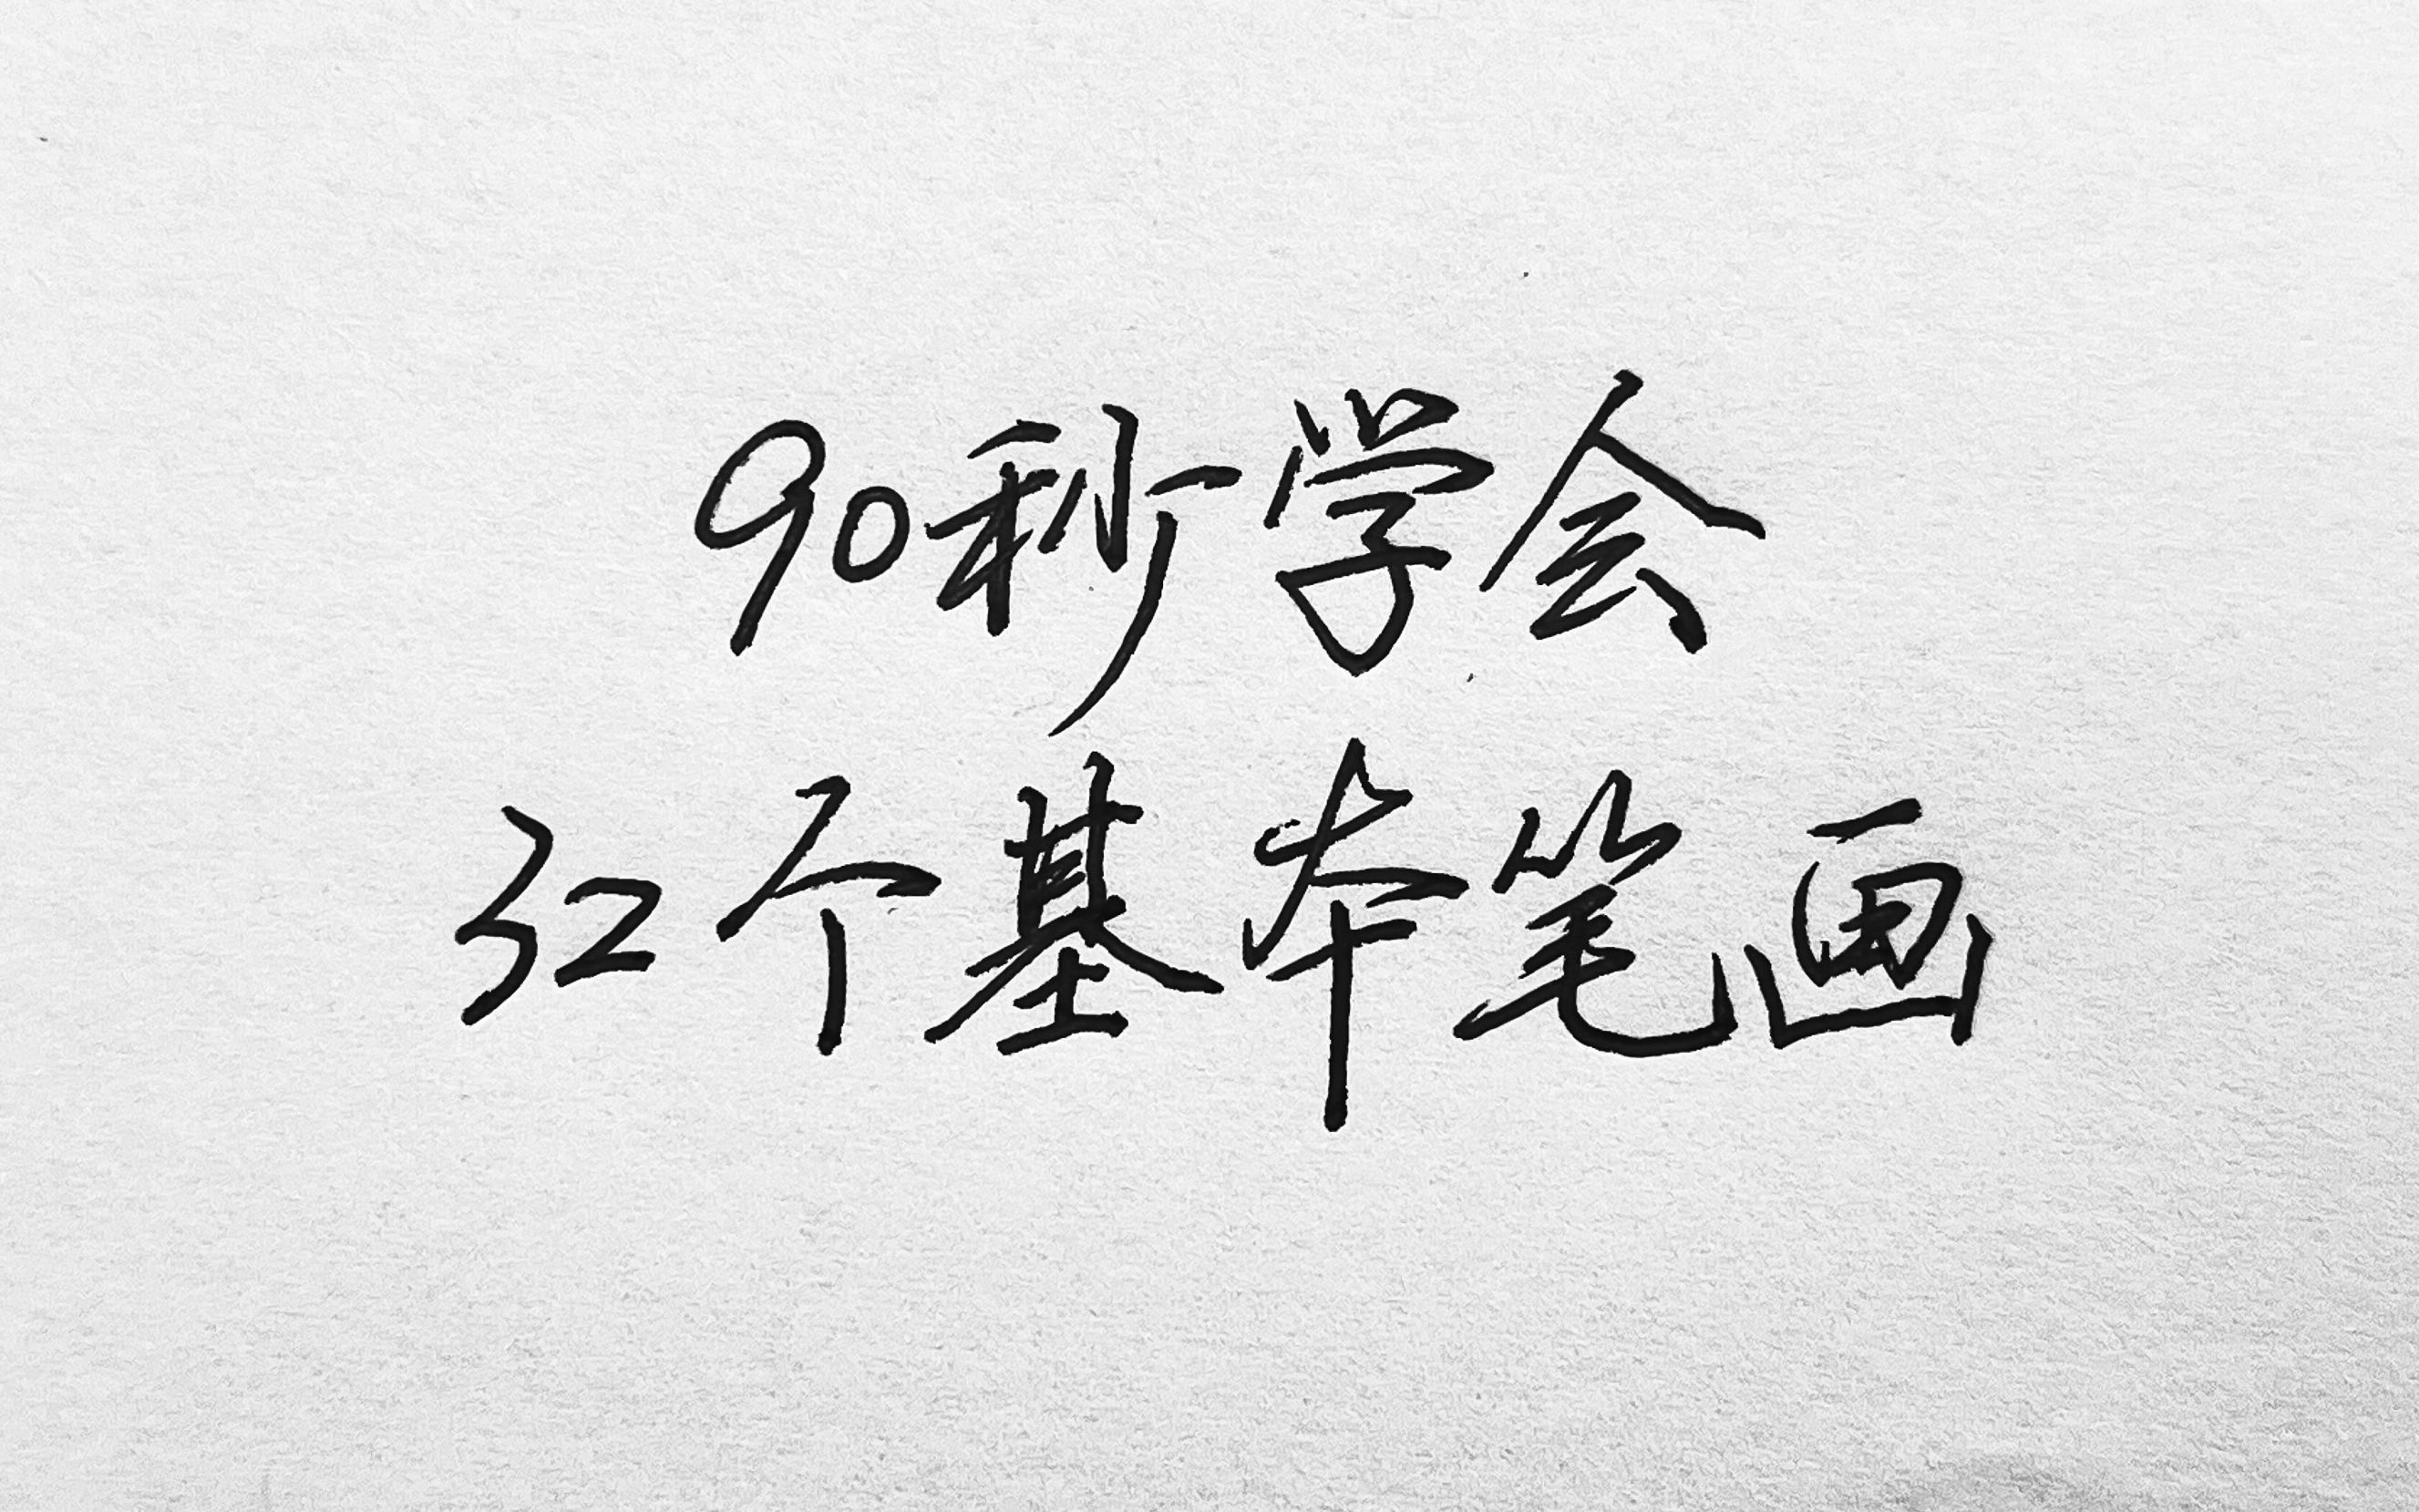 90秒学会
32个基本笔画